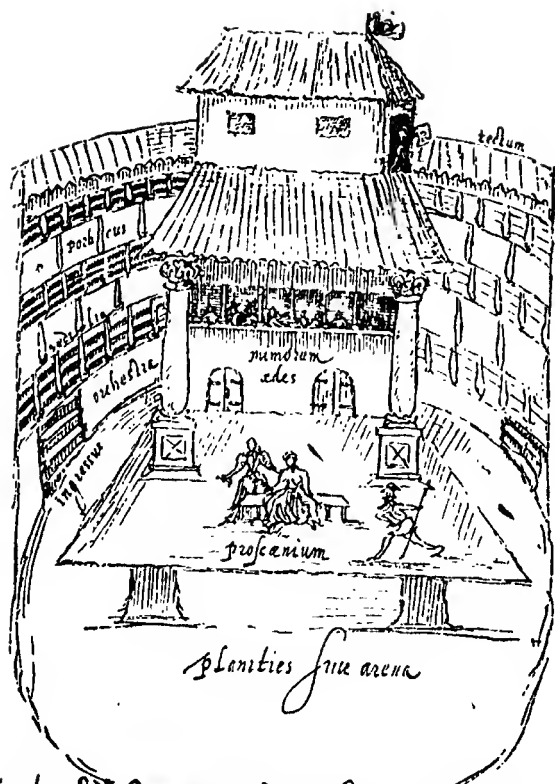 tectum
porticus
sedilia
orchestra
mimorum
ædes
ingressus
proscænium
planities siue arena